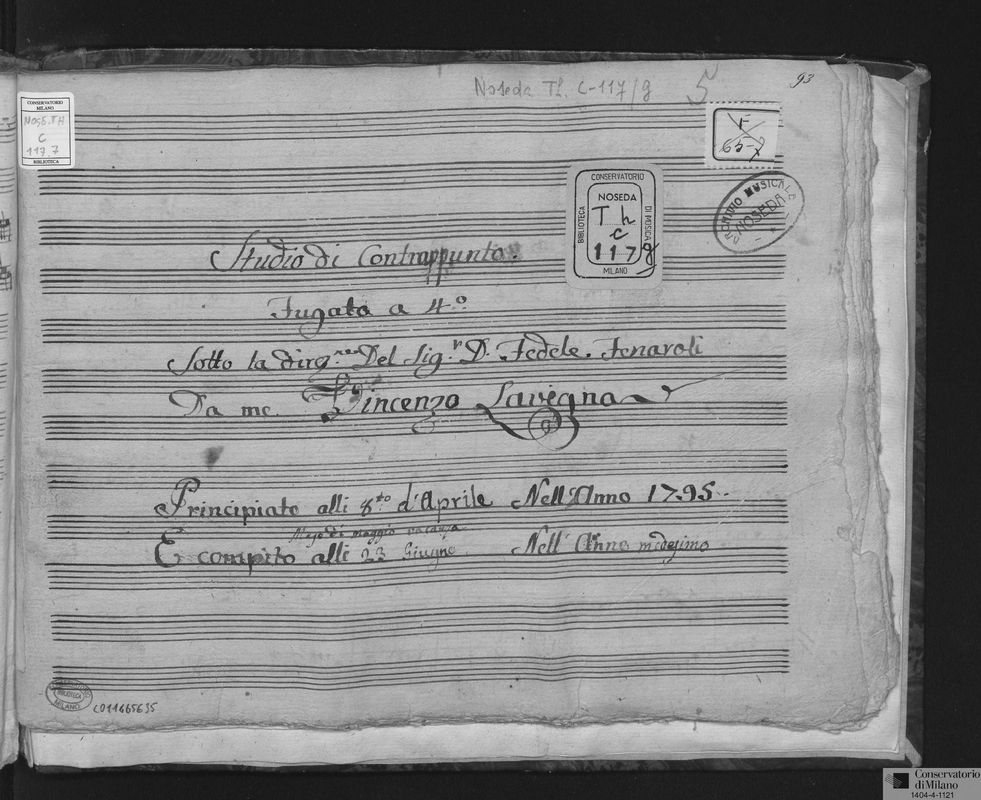 Noseda Th. C-117/g
5
93
CONSERVATORIO
MILANO
NOSE.TH.
C
117.7
BIBLIOTECA
F
65-
CONSERVATORIO
NOSEDA
Th
c
117
BIBLIOTECA
DI MUSICA
MILANO
ARCHIVIO MUSICALE
NOSEDA
Studio di Contrappunto.
Fugato a 4.º
Sotto la direg.ne Del Sig.r D. Fedele Fenaroli
Da me. Vincenzo Lavigna
Principiato alli 8.to d'Aprile Nell'Anno 1795.
di maggio vacanza
E compito alli 23 Giugno. Nell' Anno medesimo
CONSERVATORIO
BIBLIOTECA
MILANO
CO11465635
Conservatorio
di Milano
1404-4-1121